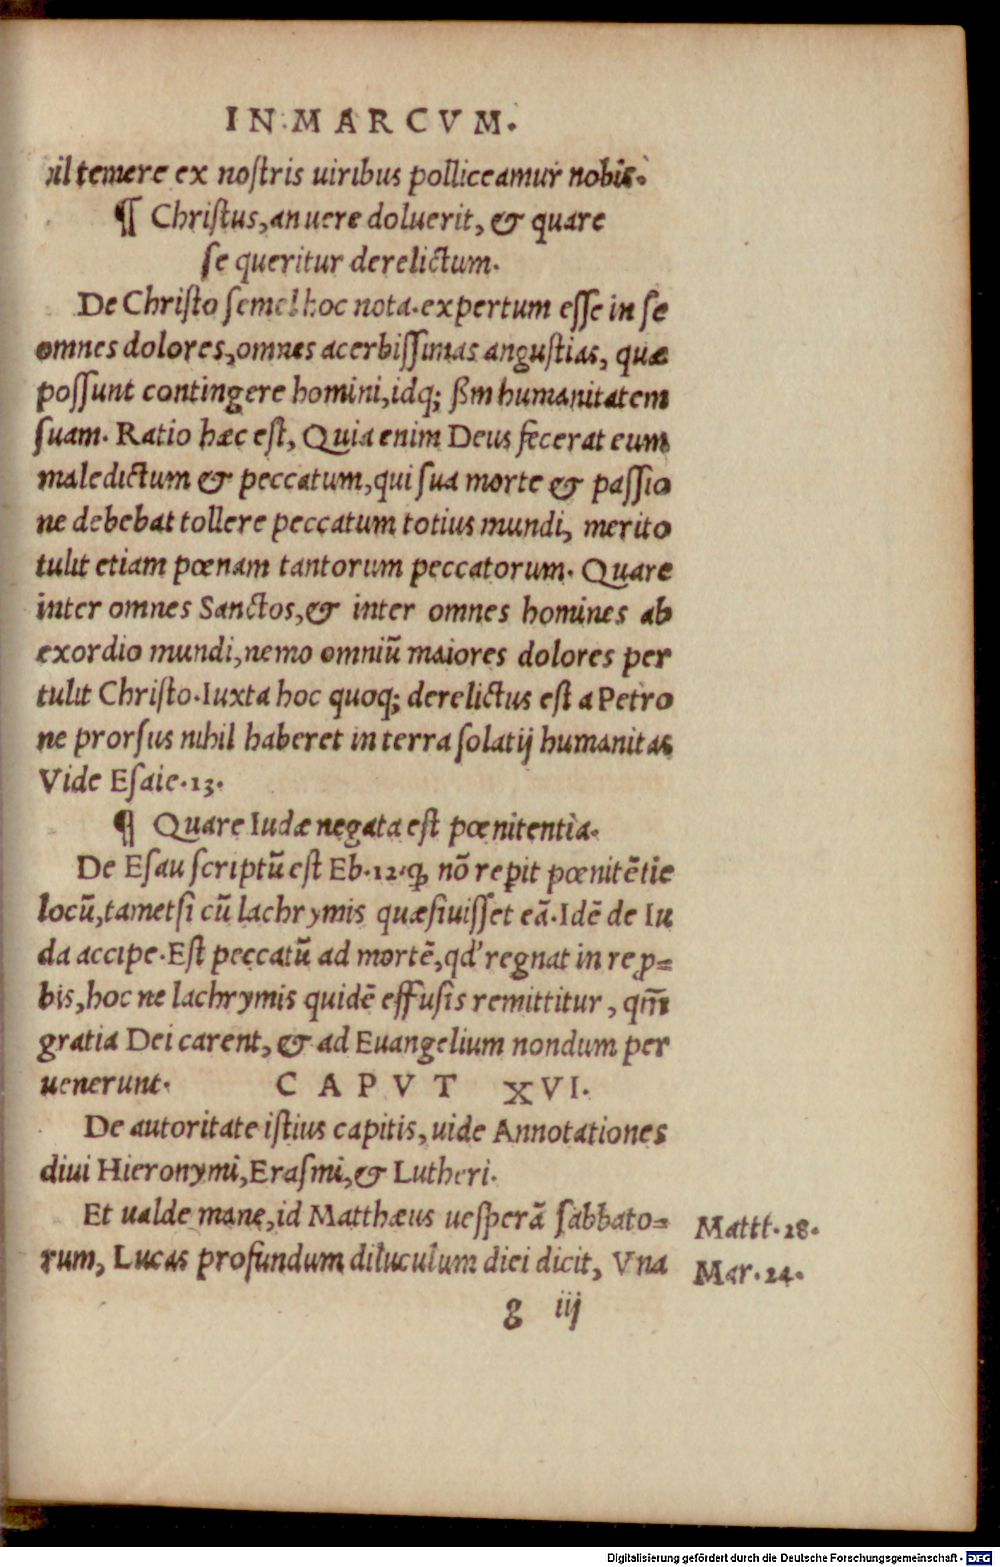 IN MARCVM.
nil temere ex noſtris uiribus polliceamur nobis.
¶ Chriſtus, an uere doluerit, & quare
ſe queritur derelictum.
De Chriſto ſemel hoc nota. expertum eſſe in ſe
omnes dolores, omnes acerbiſſimas anguſtias, quæ
poſſunt contingere homini, idq; ßm humanitatem
ſuam. Ratio hæc eſt, Quia enim Deus fecerat eum
maledictum & peccatum, qui ſua morte & paſſio
ne debebat tollere peccatum totius mundi, merito
tulit etiam pœnam tantorum peccatorum. Quare
inter omnes Sanctos, & inter omnes homines ab
exordio mundi, nemo omniũ maiores dolores per
tulit Chriſto. Iuxta hoc quoq; derelictus eſt a Petro
ne prorſus nihil haberet in terra ſolatij humanitas
Vide Eſaie. 13.
¶ Quare Iudæ negata eſt pœnitentia.
De Eſau ſcriptũ eſt Eb. 12. ꝙ nõ reꝑit pœnitẽtie
locũ, tametſi cũ lachrymis quæſiuiſſet eã. Idẽ de Iu
da accipe. Eſt peccatũ ad mortẽ, qd' regnat in reꝓ⸗
bis, hoc ne lachrymis quidẽ effuſis remittitur, qm̃
gratia Dei carent, & ad Euangelium nondum per
uenerunt. CAPVT XVI.
De autoritate iſtius capitis, uide Annotationes
diui Hieronymi, Eraſmi, & Lutheri.
Et ualde mane, id Matthæus ueſperã ſabbato⸗
rum, Lucas profundum diluculum diei dicit, Vna
Mattt. 28.
Mar. 24.
g iij
Digitalisierung gefördert durch die Deutsche Forschungsgemeinschaft - DFG